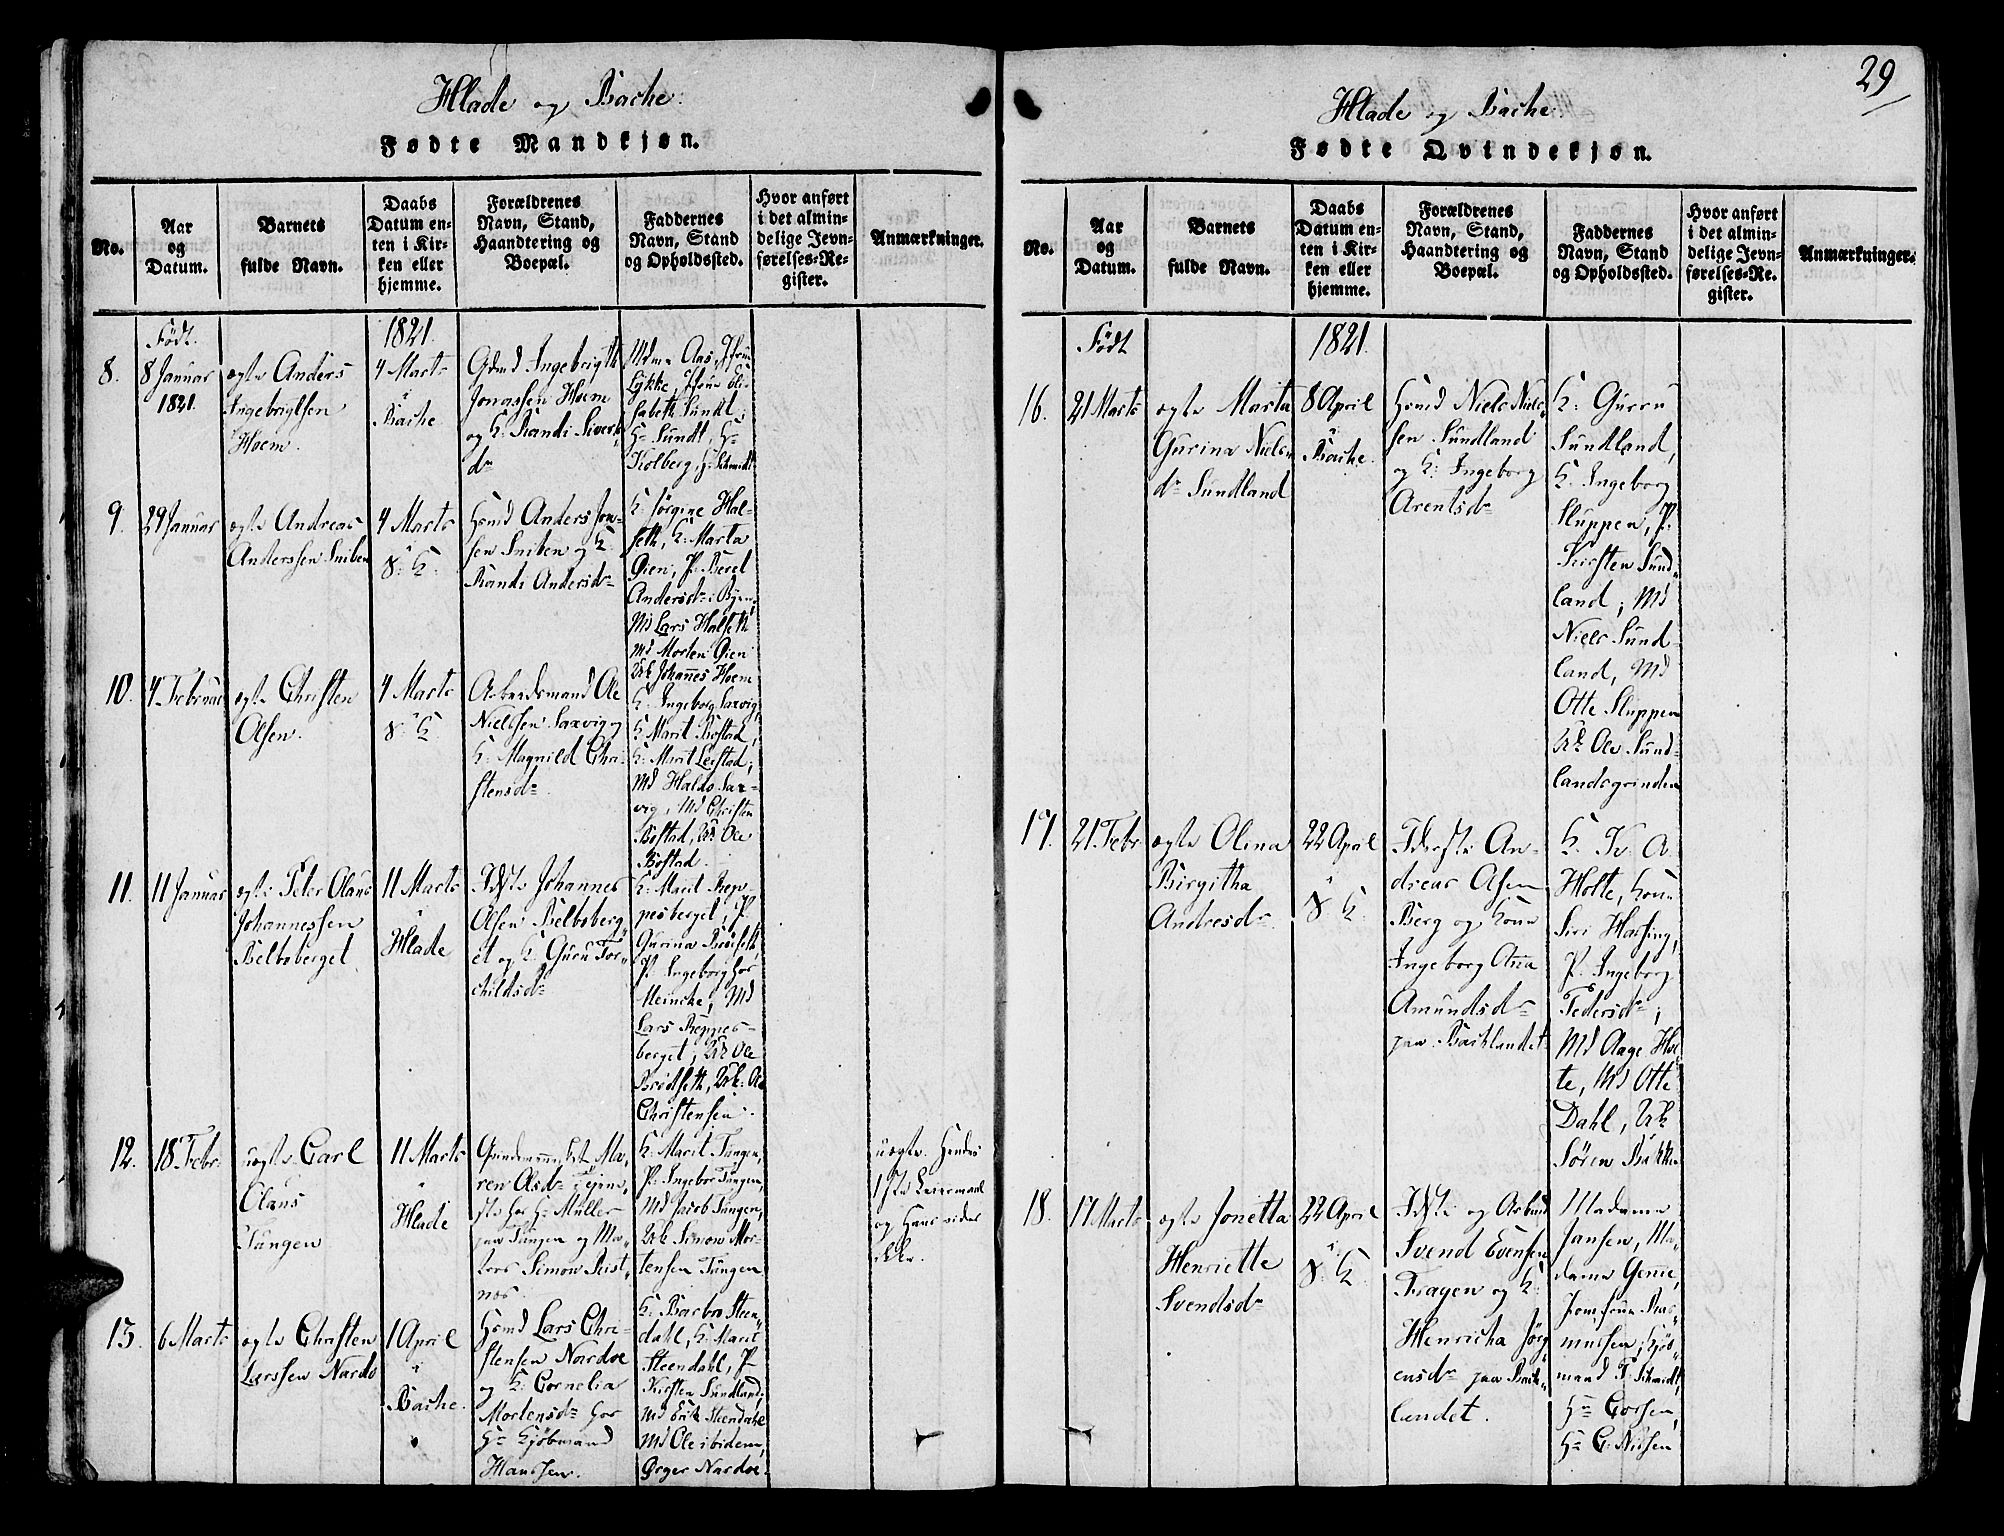 Hlade og Bache.
Fødte Mandkjøn.
No.
Aar
og
Datum.
Barnets
fulde Navn.
Daabs
Datum en-
ten i Kir-
ken eller
hjemme.
Forældrenes
Navn, Stand,
Haandtering og
Boepæl.
Faddernes
Navn, Stand
og Opholdssted.
Hvor anført
i det almin-
delige Jevn-
førelses-Re-
gister.
Anmærkninger.
Født
1821.
8.
8 Januar
1821.
ægte Anders
Ingebrigtsen
Hoem.
4 Marts
i
Bache
Gdmd Ingebrigth
Jonassen Hoem
og K: Randi Sivert
dr
Mdme Aas, Jfrue
Lykke, Jfrue Eli-
sabeth Sundt,
Hr Sundt, Hr
Kolberg, Hr Schmidt
9.
29 Januar
ægte Andreas
Anderssen Sniben
4 Marts
i
S: K:
Hsmd Anders Jon-
sen Sniben og K:
Randi Andersdr
K: Jørgine Hal-
seth, K: Marta
Øien, P: Berel
Andersdr: Byen,
Md Lars Halseth
Md Morten Øien
Uk Johannes Hoem
10.
4 Februar
ægte Christen
Olsen.
4 Marts
i
S: K:
Arbeidsmand Ole
Nielssen Saxvig og
K: Magnild Chri-
stensdr
K: Ingeborg Saxvig,
K: Marit Bostad,
K: Marit Leistad,
Md Haldo Sax-
vig, Md Christen
Bostad, Uk Ole
Bostad.
11.
11 Januar
ægte Peter Olaus
Johannessen
Belboberget
11 Marts
i
Hlade
Idste Johannes
Olsen Belboberg-
et og K: Guru Tor-
childsdr
K: Marit Rep-
pesberget, P:
Gurina Brøtseth,
P: Ingeborg hos
Meincke, Md
Lars Reppes-
berget, Uk Ole
Brødseth, Uk: Ole
Christensen.
12.
18 Febr.
uægte Carl
Olaus
Tungen
11 Marts
i
Hlade
Qvindemennesket Ma-
ren Olsdr tjene-
ste hos Hr Müller
paa Tungen og Ma-
tros Simon Rist-
nos.
K: Marit Tungen,
P: Ingebor Tungen,
Md Jacob Tungen,
Uk Simon Mor-
tensen Tungen
uægte. Hendes
1ste Leiermaal
og Hans vides
ikke.
13.
6 Marts
ægte Christen
Larssen Nardo
1 April
i
Bache.
Hsmd Lars Chri-
stensen Nardoe
og K: Cornelia
Mortensdr hos
Hr Kjøbmand
Hanssen.
K: Barbro Steen-
dahl, K: Marit
Steendahl, P:
Kirsten Sundland,
Md Erik Steendahl
Md Ole ibidem,
Ørger Nardoe.
29
Hlade og Bache.
Fødte Qvindekjøn.
No.
Aar
og
Datum.
Barnets
fulde Navn.
Daabs
Datum en-
ten i Kir-
ken eller
hjemme.
Forældrenes
Navn, Stand,
Haandtering og
Boepæl.
Faddernes
Navn, Stand
og Opholdssted.
Hvor anført
i det almin-
delige Jevn-
førelses-Re-
gister.
Anmærkninger.
Født
1821.
16.
21 Marts
ægte Marta
Gurina Niels-
dr Sundland
8 April
i
Bache.
Hsmd Niels Niel-
sen Sundland
og K: Ingeborg
Arentsdr
K: Gurru
Sundland,
K: Ingeborg
Sluppen, P:
Kirsten Sund-
land, Md
Niels Sund
land, Md
Otte Sluppen
Uk Ole Sund-
landsgrinden
17.
21 Febr
ægte Olina
Birgitha
Andresdr
22 April
i
S: K:
Iderste An-
dreas Olsen
Berg og Kone
Ingeborg Anna
Amundsdr
paa Backlandet
K: K: A
Holte, Kone
Siri Harsing,
P: Ingeborg
Pedersdr,
Md Aage Hol-
te, Md Otte
Dahl, Uk
Søren Bakken
18.
17 Marts
ægte Jonetta
Henriette
Svendsdr
22 April
i
S: K:
Idste og Arbmd
Svend Evensen
Fragen og K:
Henricha Jørg-
ensdr paa Back-
landet.
Madame
Jansen, Ma-
dame Genne,
Jomfrue Ras-
mussen, Kjøb-
mand F: Schmidt,
Hr Corsen,
Hr C: Nissen